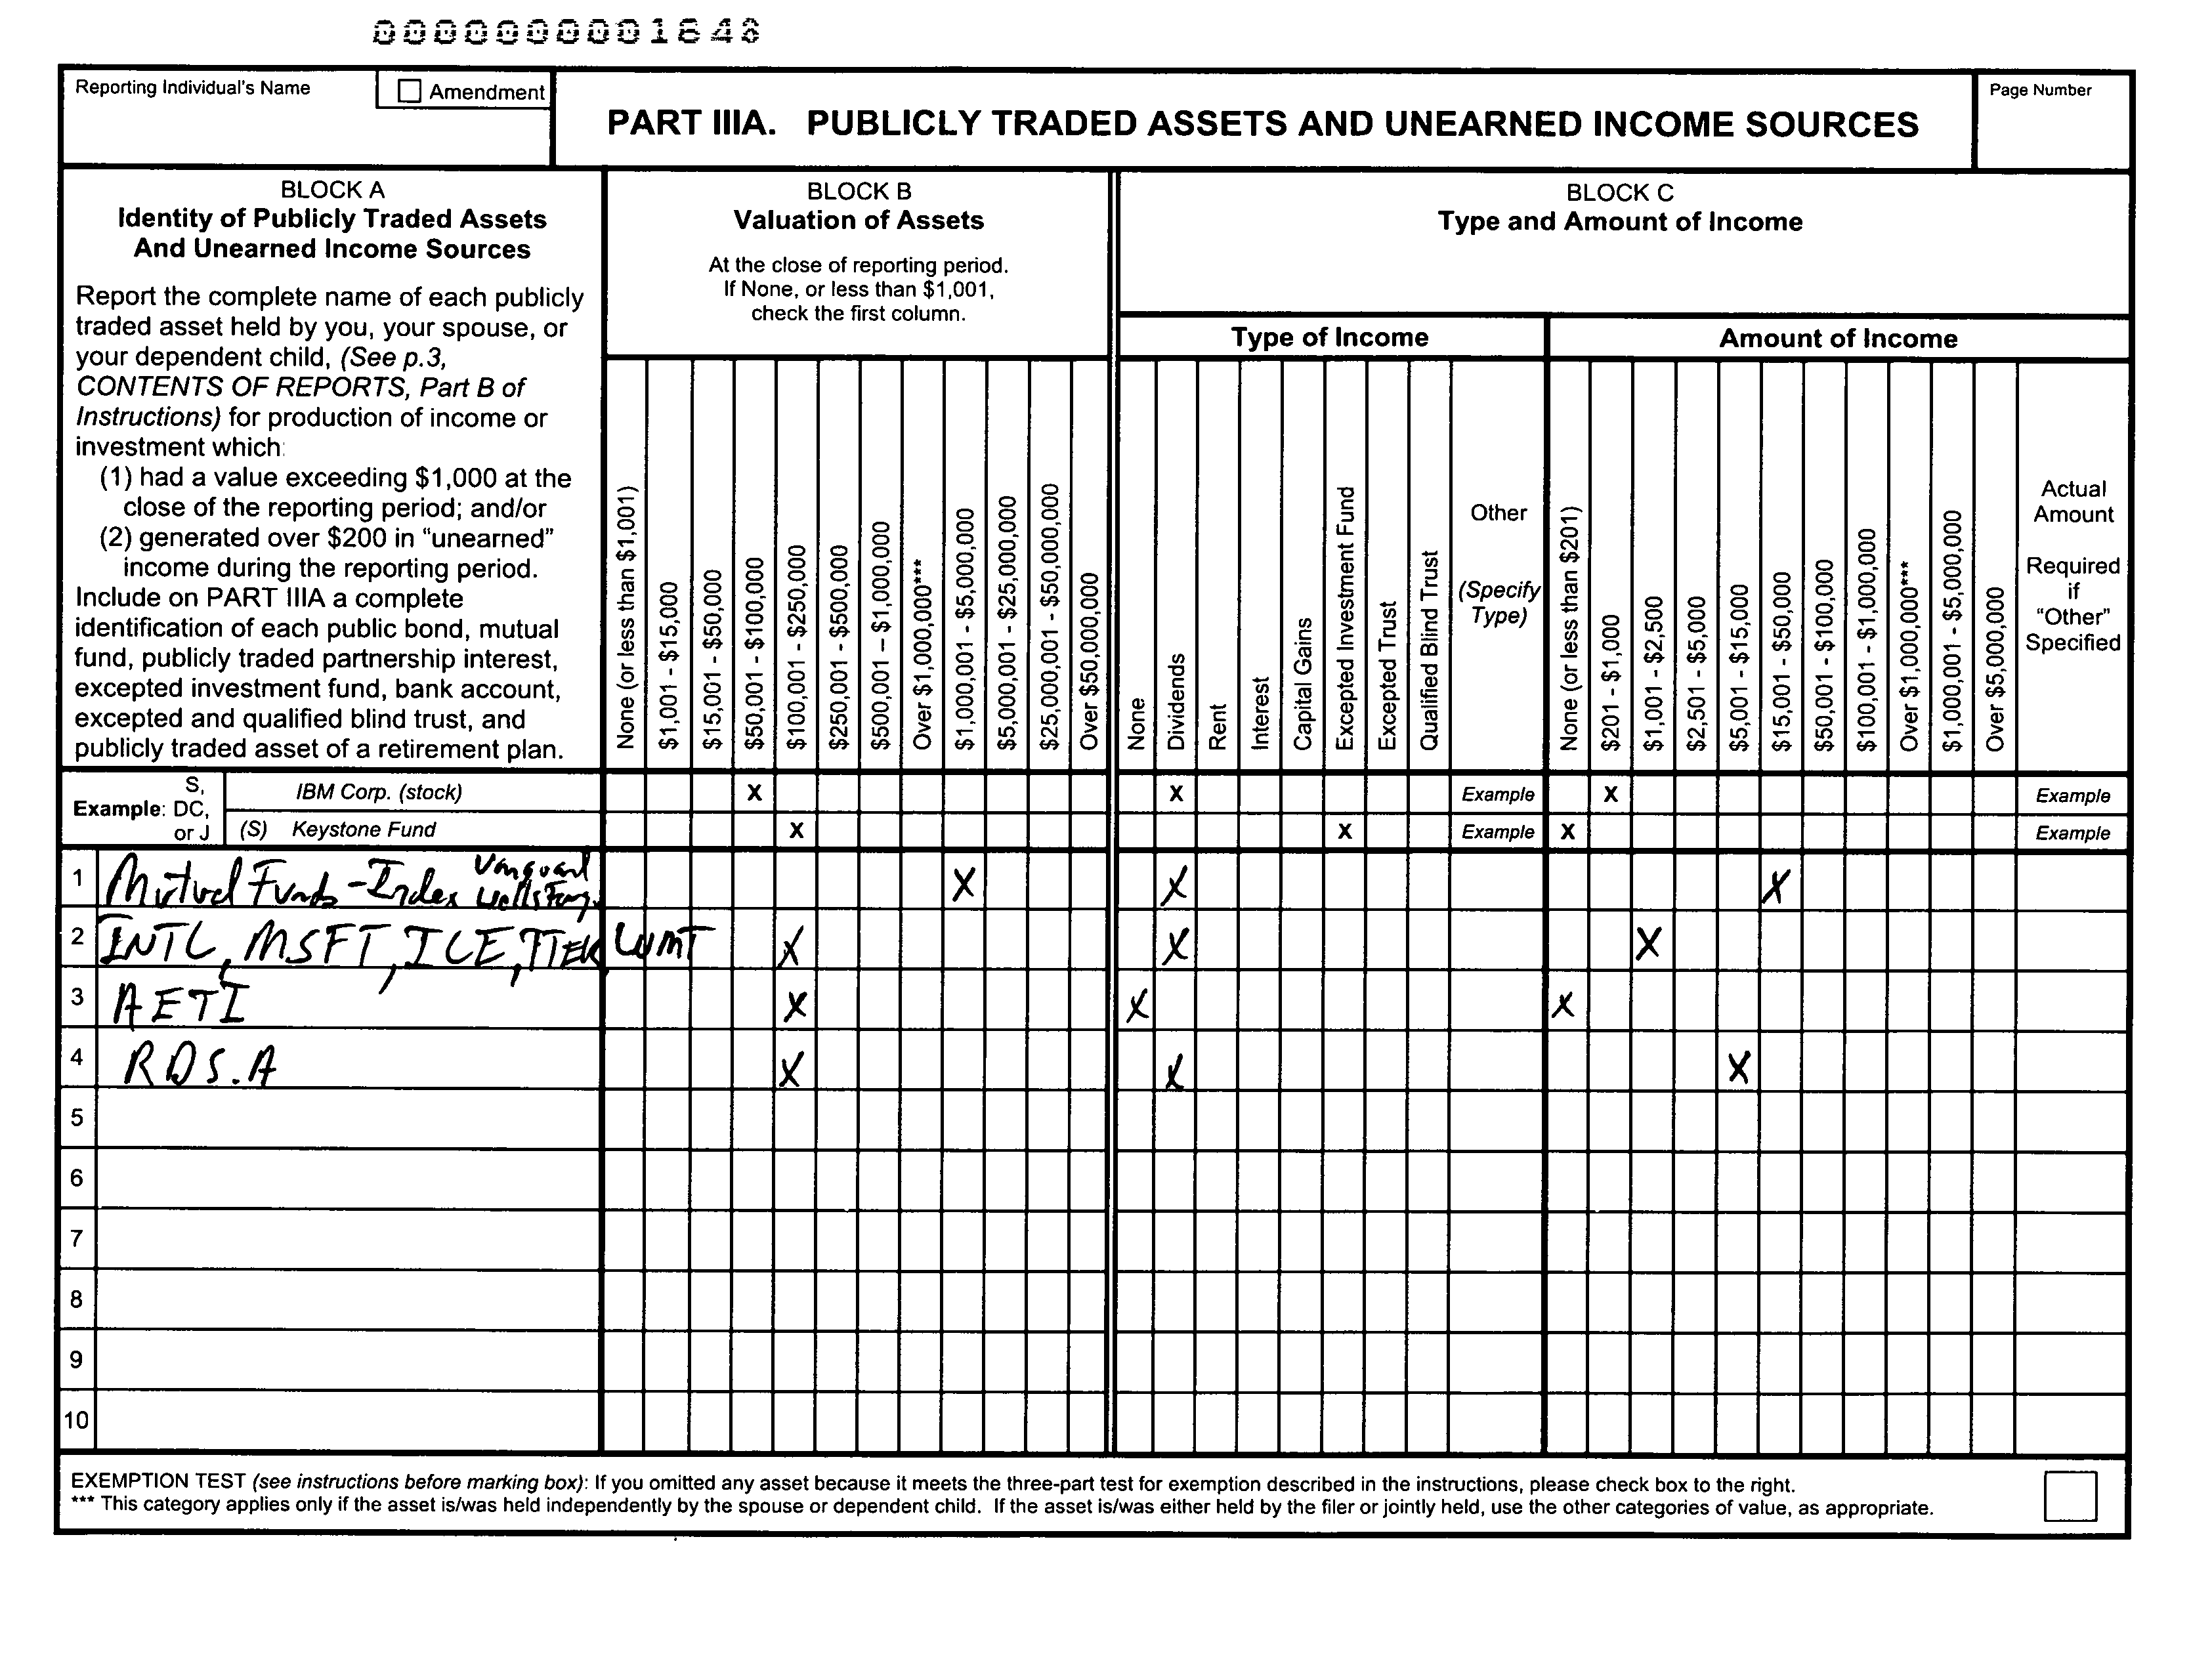 0000000001648
Reporting Individual's Name
Amendment
PART IIIA. PUBLICLY TRADED ASSETS AND UNEARNED INCOME SOURCES
Page Number
BLOCK A
Identity of Publicly Traded Assets
And Unearned Income Sources
Report the complete name of each publicly
traded asset held by you, your spouse, or
your dependent child, (See p.3,
CONTENTS OF REPORTS, Part B of
Instructions) for production of income or
investment which:
(1) had a value exceeding $1,000 at the
close of the reporting period; and/or
(2) generated over $200 in “unearned”
income during the reporting period.
Include on PART IIIA a complete
identification of each public bond, mutual
fund, publicly traded partnership interest,
excepted investment fund, bank account,
excepted and qualified blind trust, and
publicly traded asset of a retirement plan.
BLOCK B
Valuation of Assets
At the close of reporting period.
If None, or less than $1,001,
check the first column.
None (or less than $1,001)
$1,001 - $15,000
$15,001 - $50,000
$50,001 - $100,000
$100,001 - $250,000
$250,001 - $500,000
$500,001 – $1,000,000
Over $1,000,000***
$1,000,001 - $5,000,000
$5,000,001 - $25,000,000
$25,000,001 - $50,000,000
Over $50,000,000
BLOCK C
Type and Amount of Income
Type of Income
None
Dividends
Rent
Interest
Capital Gains
Excepted Investment Fund
Excepted Trust
Qualified Blind Trust
Other
(Specify
Type)
Amount of Income
None (or less than $201)
$201 - $1,000
$1,001 - $2,500
$2,501 - $5,000
$5,001 - $15,000
$15,001 - $50,000
$50,001 - $100,000
$100,001 - $1,000,000
Over $1,000,000***
$1,000,001 - $5,000,000
Over $5,000,000
Actual
Amount
Required
if
“Other”
Specified
Example: S, DC, or J
IBM Corp. (stock) X X Example X Example
(S) Keystone Fund X X Example X Example
1 Mutual Funds - Index Vanguard Wells Fargo X X X
2 INTC, MSFT, ICE, TTEK, WMT X X X
3 AETI X X X
4 RDS.A X X X
5
6
7
8
9
10
EXEMPTION TEST (see instructions before marking box): If you omitted any asset because it meets the three-part test for exemption described in the instructions, please check box to the right.
*** This category applies only if the asset is/was held independently by the spouse or dependent child. If the asset is/was either held by the filer or jointly held, use the other categories of value, as appropriate.